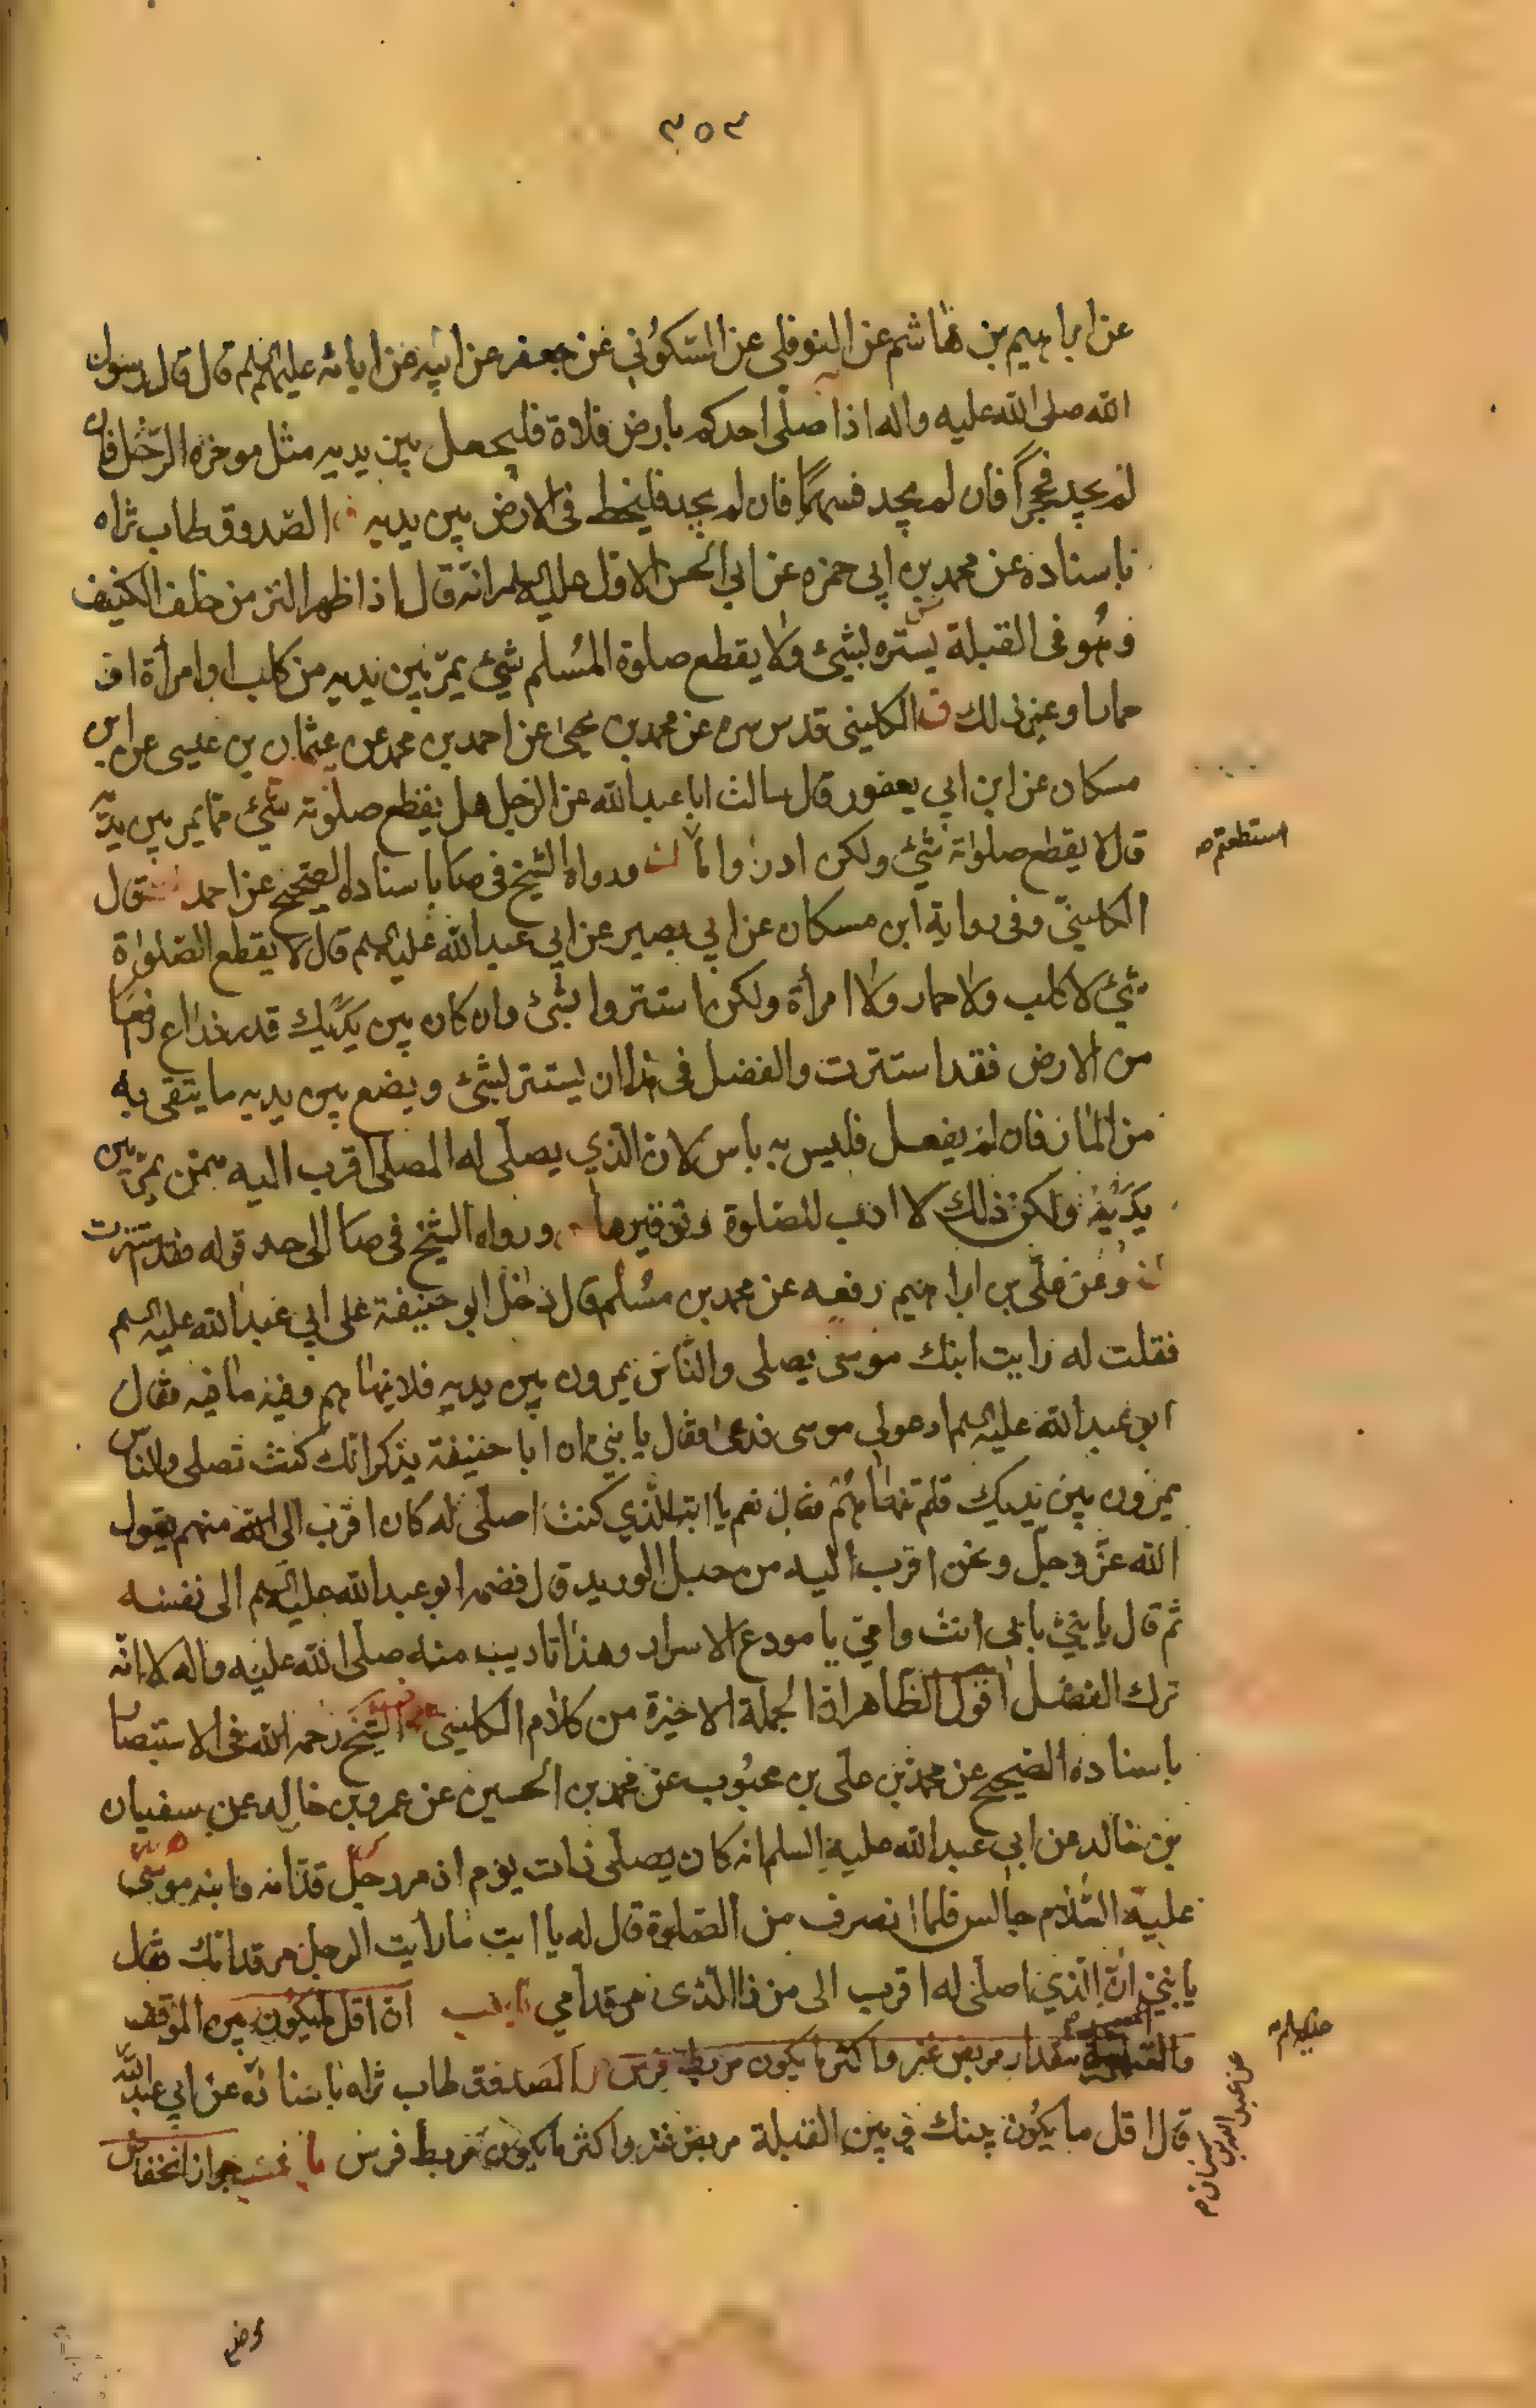 ٣٥٣
عن ابراهيم بن هاشم عن النوفلى عن السكونى عن جعفر عن ابيه عن ابائه عليهم السلم قال قال رسول
الله صلى الله عليه واله اذا صلى احدكم بارض فلاة فليجعل بين يديه مثل موخره الرحل فان
لم يجد فحجراً فان لم يجد فسهماً فان لم يجد فليخط فى الارض بين يديه الصدوق طاب ثراه
باسناده عن محمد بن ابى حمزه عن ابى الحسن الاول عليه السلم انه قال اذا ظهر النز من خلف الكنيف
وهو فى القبلة يستره بشئ ولا يقطع صلوة المسلم شئ يمر بين يديه من كلب او امرأة او
حمار او غير ذلك الكلينى قدس سره عن محمد بن يحيى عن احمد بن محمد عن عثمان بن عيسى عن ابن
مسكان عن ابن ابى يعفور قال سالت ابا عبد الله عن الرجل هل يقطع صلوته شئ مما يمر بين يديه
قال لا يقطع صلواته شئ ولكن ادرؤا ما ورواه الشيخ فى صا باسناده الصحيح عن احمد قال
استطعتم
الكلينى وفى رواية ابن مسكان عن ابى بصير عن ابى عبد الله عليه السلم قال لا يقطع الصلواة
شئ لا كلب ولا حمار ولا امرأة ولكن استتروا بشئ وان كان بين يديك قدر ذراع رافعا
من الارض فقد استترت والفضل فى هذا ان يستتر بشئ ويضع بين يديه ما يتقى به
من المار فان لم يفعل فليس به باس لان الذي يصلى له المصلى اقرب اليه ممن يمر بين
يديه ولكن ذلك لا ادب للصلوة وتوقيرها ورواه الشيخ فى صا الى حد قوله فقد استترت
وعن على بن ابراهيم رفعه عن محمد بن مسلم قال دخل ابو حنيفة على ابى عبد الله عليه السلم
فقلت له رايت ابنك موسى يصلى والناس يمرون بين يديه فلا ينهاهم وفيه ما فيه فقال
ابو عبد الله عليه السلم ادعو لى موسى فدعى فقال يا بنى ان ابا حنيفة يذكر انك كنت تصلى والناس
يمرون بين يديك فلم تنهاهم فقال نعم يا ابت الذي كنت اصلى له كان اقرب الى الله منهم يقول
الله عز وجل ونحن اقرب اليه من حبل الوريد قال فضمه ابو عبد الله عليه السلم الى نفسه
ثم قال يا بنى بابى انت وامى يا مودع الاسرار وهذا تاديب منه صلى الله عليه واله لا انه
ترك الفضل اقول الظاهر ان الجملة الاخيرة من كلام الكلينى الشيخ رحمه الله فى الاستبصار
باسناده الصحيح عن محمد بن على بن محبوب عن محمد بن الحسين عن عمرو بن خالد عن سفيان
بن خالد عن ابى عبد الله عليه السلم انه كان يصلى ذات يوم اذ مر رجل قدامه وابنه موسى
عليه السلام جالس فلما انصرف من الصلوة قال له يا ابت ما رأيت الرجل مر قدامك فقال
يا بنى ان الذي اصلى له اقرب الى من ذا الذى مر قدامى ان اقل ليكون بين الموقف
عليه السلم
والقبلة مقدار مربض عنز واكثر ما يكون مربط فرس الصدوق طاب ثراه باسناده عن ابى عبد الله
قال اقل ما يكون بينك وبين القبلة مربض عنز واكثر ما يكون مربط فرس جواز انخفاض